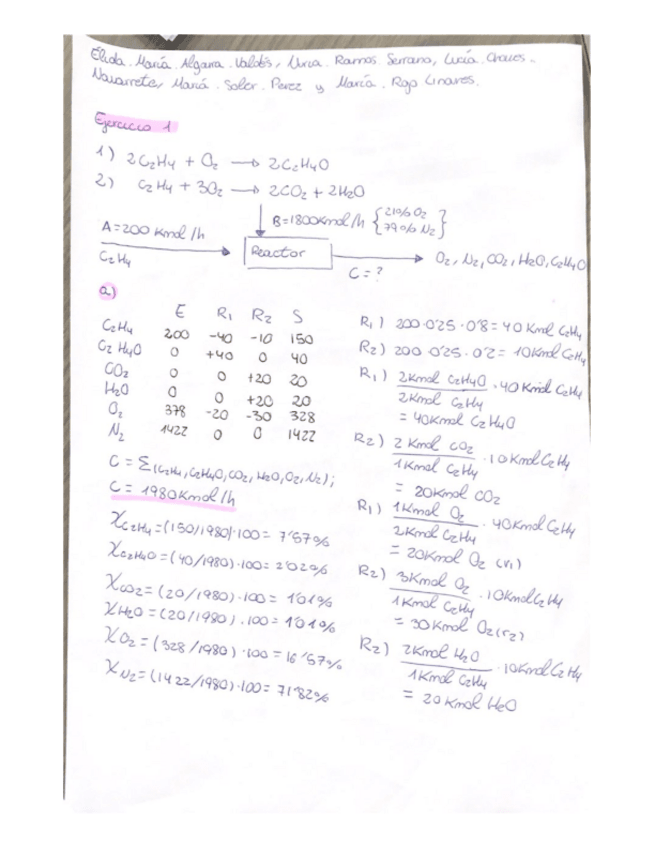 Élida María Algarra Valdés, Nuria Ramos Serrano, Lucía Chaves
Navarrete, María Soler Perez y María Rojo Linares.
Ejercicio 1
1) 2C₂H₄ + O₂ → 2C₂H₄O
2) C₂H₄ + 3O₂ → 2CO₂ + 2H₂O
B=1800Kmol/h {21% O₂
79% N₂}
A=200 Kmol/h
C₂H₄
Reactor
C=?
O₂, N₂, CO₂, H₂O, C₂H₄O
a)
E R₁ R₂ S
C₂H₄ 200 -40 -10 150
C₂H₄O 0 +40 0 40
CO₂ 0 0 +20 20
H₂O 0 0 +20 20
O₂ 378 -20 -30 328
N₂ 1422 0 0 1422
C = Σ(C₂H₄, C₂H₄O, CO₂, H₂O, O₂, N₂);
C = 1980Kmol/h
χC₂H₄=(150/1980)·100= 7'57%
χC₂H₄O=(40/1980)·100=2'02%
χCO₂=(20/1980)·100= 1'01%
χH₂O=(20/1980).100=1'01%
χO₂=(328/1980)·100=16'57%
χN₂=(1422/1980)·100= 71'82%
R₁) 200·0'25·0'8=40 Kmol C₂H₄
R₂) 200·0'25·0'2= 10Kmol C₂H₄
R₁) 2Kmol C₂H₄O ·40Kmol C₂H₄
2Kmol C₂H₄
= 40Kmol C₂H₄O
R₂) 2 Kmol CO₂ ·10KmolC₂H₄
1Kmol C₂H₄
= 20Kmol CO₂
R₁) 1Kmol O₂ ·40Kmol C₂H₄
2Kmol C₂H₄
= 20Kmol O₂ (r₁)
R₂) 3Kmol O₂ ·10KmolC₂H₄
1Kmol C₂H₄
= 30Kmol O₂(r₂)
R₂) 2Kmol H₂O ·10KmolC₂H₄
1Kmol C₂H₄
= 20Kmol H₂O